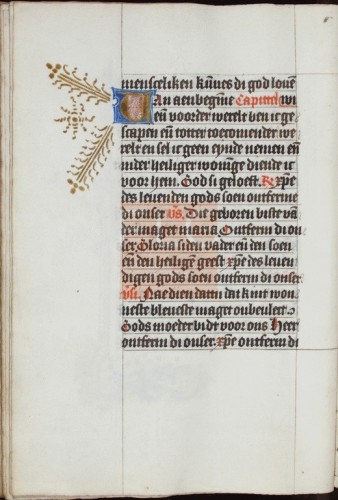 mensceliken kunes di god louē
Van aenbeginne Capittel wi
eñ voor der werelt ben ic ge
scapen eñ totter toecomender we
relt en sel ic geen eynde nemen eñ
in der heiliger woninge diende ic
voor hem. God si geloeft. R xp̄e
des leuenden gods soen ontferme
di onser Vs. Die geboren biste vā
der maget maria Ontferm di on
ser Gloria si den vader eñ den soen
eñ den heiligē geest xp̄e des leuen
digen gods soen ontferm di onser
Vs. Nae dien dattu dat kint won
neste bleueste maget onbeulect
Gods moeder bidt voor ons Heer
ontferm di onser. xp̄e ontferm di